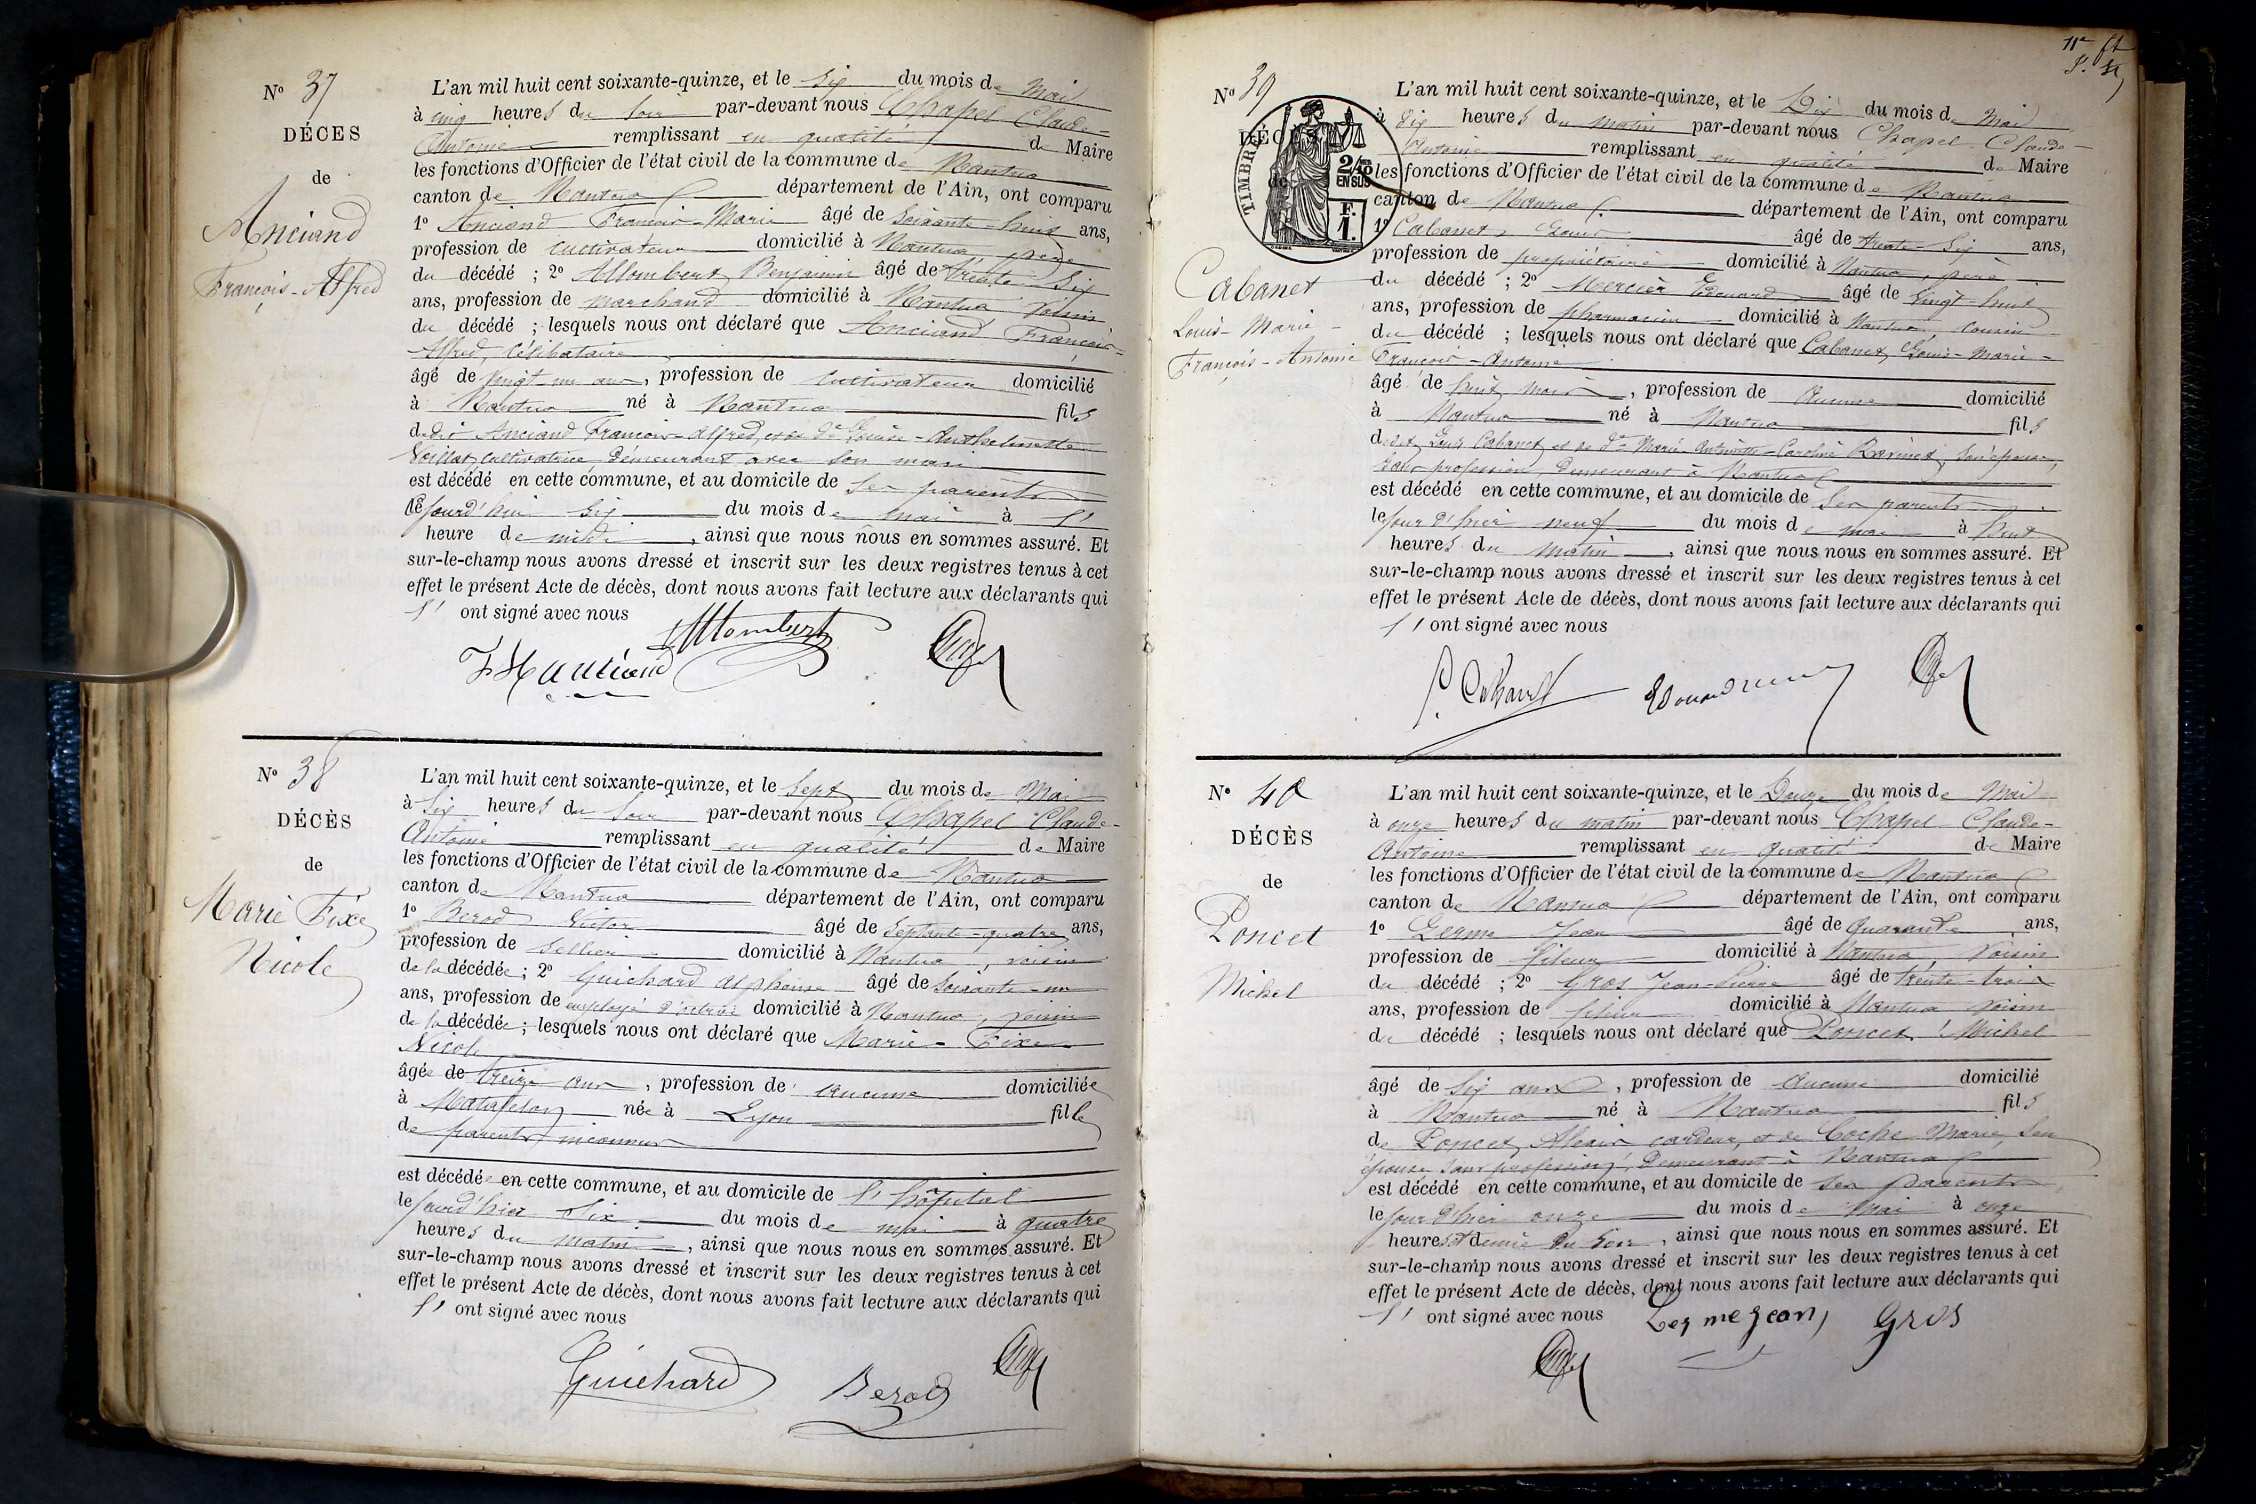 N° 37
DÉCES
de
Anciand
François-Alfred
L'an mil huit cent soixante-quinze, et le six du mois de Mai
à cinq heures du soir par-devant nous Chapel Claude-
Antoine remplissant en qualité de Maire
les fonctions d'Officier de l'état civil de la commune de Nantua
canton de Nantua département de l'Ain, ont comparu
1° Anciand François-Marie âgé de soixante-huit ans,
profession de cultivateur domicilié à Nantua père
du décédé ; 2° Allombert Benjamin âgé de trente-six
ans, profession de marchand domicilié à Nantua voisin
du décédé ; lesquels nous ont déclaré que Anciand François-
Alfred, célibataire
âgé de vingt-un ans, profession de cultivateur domicilié
à Nantua né à Nantua fils
dudit Anciand François-Alfred, et de de Louise-Anthelmette
cultivatrice, demeurant avec son mari
est décédé en cette commune, et au domicile de ses parents
le jourd'hui six du mois de mai à l'
heure de midi, ainsi que nous nous en sommes assuré. Et
sur-le-champ nous avons dressé et inscrit sur les deux registres tenus à cet
effet le présent Acte de décès, dont nous avons fait lecture aux déclarants qui
l' ont signé avec nous
Allombert
N° 38
DÉCÈS
de
Marie Fixe
Nicole
L'an mil huit cent soixante-quinze, et le sept du mois de Mai
à six heures du soir par-devant nous Chapel Claude-
Antoine remplissant en qualité de Maire
les fonctions d'Officier de l'état civil de la commune de Nantua
canton de Nantua département de l'Ain, ont comparu
1° Berod Victor âgé de septante-quatre ans,
profession de sellier domicilié à Nantua, voisin
de la décédée ; 2° Guichard Alphonse âgé de soixante-un
ans, profession de employé d'octroi domicilié à Nantua, voisin
de la décédée ; lesquels nous ont déclaré que Marie-Fixe
Nicole
âgée de treize ans, profession de aucune domiciliée
à Matafelon née à Lyon fille
de parents inconnus
est décédé en cette commune, et au domicile de l'hôpital
le jourd'hier six du mois de mai à quatre
heures du matin, ainsi que nous nous en sommes assuré. Et
sur-le-champ nous avons dressé et inscrit sur les deux registres tenus à cet
effet le présent Acte de décès, dont nous avons fait lecture aux déclarants qui
l' ont signé avec nous
Guichard Berod
11e ft
N° 39
DÉCÈS
de
TIMBRE
2/10 EN SUS
F. 1.
Cabanet
Louis-Marie-
François-Antoine
L'an mil huit cent soixante-quinze, et le Dix du mois de Mai
à dix heures du matin par-devant nous Chapel Claude-
Antoine remplissant en qualité de Maire
les fonctions d'Officier de l'état civil de la commune de Nantua
canton de Nantua département de l'Ain, ont comparu
1° Cabanet Louis âgé de trente-six ans,
profession de propriétaire domicilié à Nantua, père
du décédé ; 2° Mercier Edouard âgé de vingt-huit
ans, profession de pharmacien domicilié à Nantua, cousin
du décédé ; lesquels nous ont déclaré que Cabanet Louis-Marie-
François-Antoine
âgé de huit mois, profession de aucune domicilié
à Nantua né à Nantua fils
dudit Louis Cabanet et de de Marie-Antoinette-Caroline Ravinet, son épouse,
sans profession, demeurant à Nantua
est décédé en cette commune, et au domicile de ses parents
le jour d'hier neuf du mois de mai à huit
heures du matin, ainsi que nous nous en sommes assuré. Et
sur-le-champ nous avons dressé et inscrit sur les deux registres tenus à cet
effet le présent Acte de décès, dont nous avons fait lecture aux déclarants qui
l' ont signé avec nous
L. Cabanet Edouard
N° 40
DÉCÈS
de
Poncet
Michel
L'an mil huit cent soixante-quinze, et le Douze du mois de Mai
à onze heures du matin par-devant nous Chapel Claude-
Antoine remplissant en qualité de Maire
les fonctions d'Officier de l'état civil de la commune de Nantua
canton de Nantua département de l'Ain, ont comparu
1° Lerme Jean âgé de quarante ans,
profession de fileur domicilié à Nantua, voisin
du décédé ; 2° Gros Jean-Pierre âgé de trente-trois
ans, profession de fileur domicilié à Nantua voisin
du décédé ; lesquels nous ont déclaré que Poncet Michel
âgé de six ans, profession de aucune domicilié
à Nantua né à Nantua fils
de Poncet Alexis cardeur, et de Coche Marie, son
épouse sans profession, demeurant à Nantua
est décédé en cette commune, et au domicile de ses parents
le jour d'hier onze du mois de mai à onze
heures et demie du soir, ainsi que nous nous en sommes assuré. Et
sur-le-champ nous avons dressé et inscrit sur les deux registres tenus à cet
effet le présent Acte de décès, dont nous avons fait lecture aux déclarants qui
l' ont signé avec nous Lerme Jean Gros